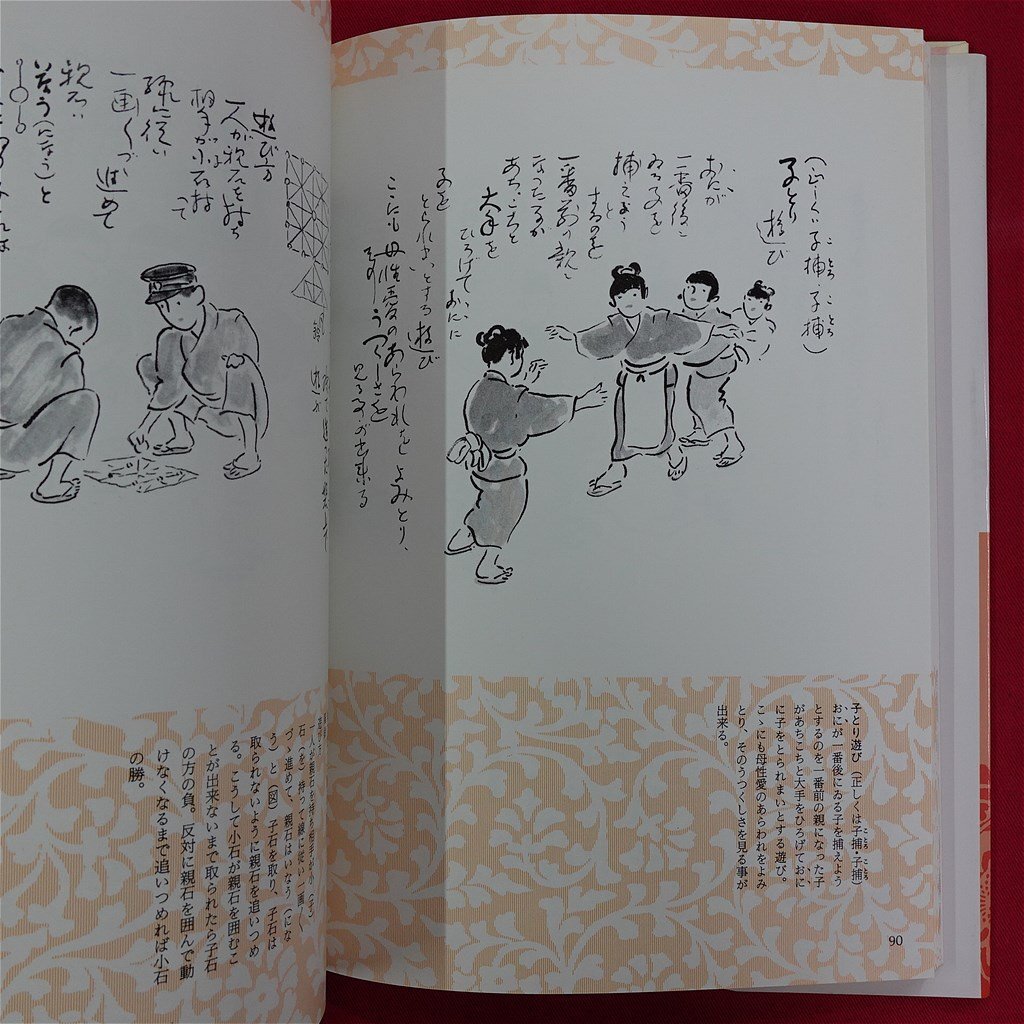 (正しくは子捕・子捕)
ことろ ことろ
子とり遊び
おにが
一番後に
ゐる子を
捕えよう
と
するのを
一番前の親に
なった子が
あちこちと
大手を
ひろげておにに
子を
とられまいとする遊び
こゝにも母性愛のあらわれをよみとり、
そのうつくしさを
見る事が出来る
子とり遊び(正しくは子捕・子捕)
ことろ ことろ
おにが一番後にゐる子を捕えよう
とするのを一番前の親になった子
があちこちと大手をひろげておに
に子をとられまいとする遊び。
こゝにも母性愛のあらわれをよみ
とり、そのうつくしさを見る事が
出来る。
90
遊び方
一人が親石を持ち
相手が小石を持って
線に従い
一画づゝ進めて
親石は
荷う(になう)と
遊び方
一人が親石を持ち相手が小(子)
石(を)持って線に従い一画づ
づゝ進めて、親石はいなう(にな
う)と(図)子石を取り、子石は
取られないように親石を追いつめ
る。こうして小石が親石を囲むこ
とが出来ないまで取られたら子石
の方の負。反対に親石を囲んで動
けなくなるまで追いつめれば小石
の勝。